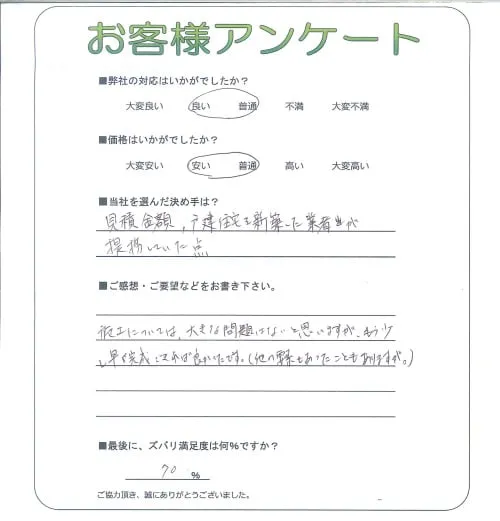 お客様アンケート
■弊社の対応はいかがでしたか？
大変良い 良い 普通 不満 大変不満
■価格はいかがでしたか？
大変安い 安い 普通 高い 大変高い
■当社を選んだ決め手は？
見積金額，戸建住宅を新築した業者が
提携していた点
■ご感想・ご要望などをお書き下さい。
施工については，大きな問題はないと思いますが，もう少
し早く完成できれば良かったです。(他の要素もあったこともありますが。)
■最後に、ズバリ満足度は何%ですか？
70 %
ご協力頂き、誠にありがとうございました。